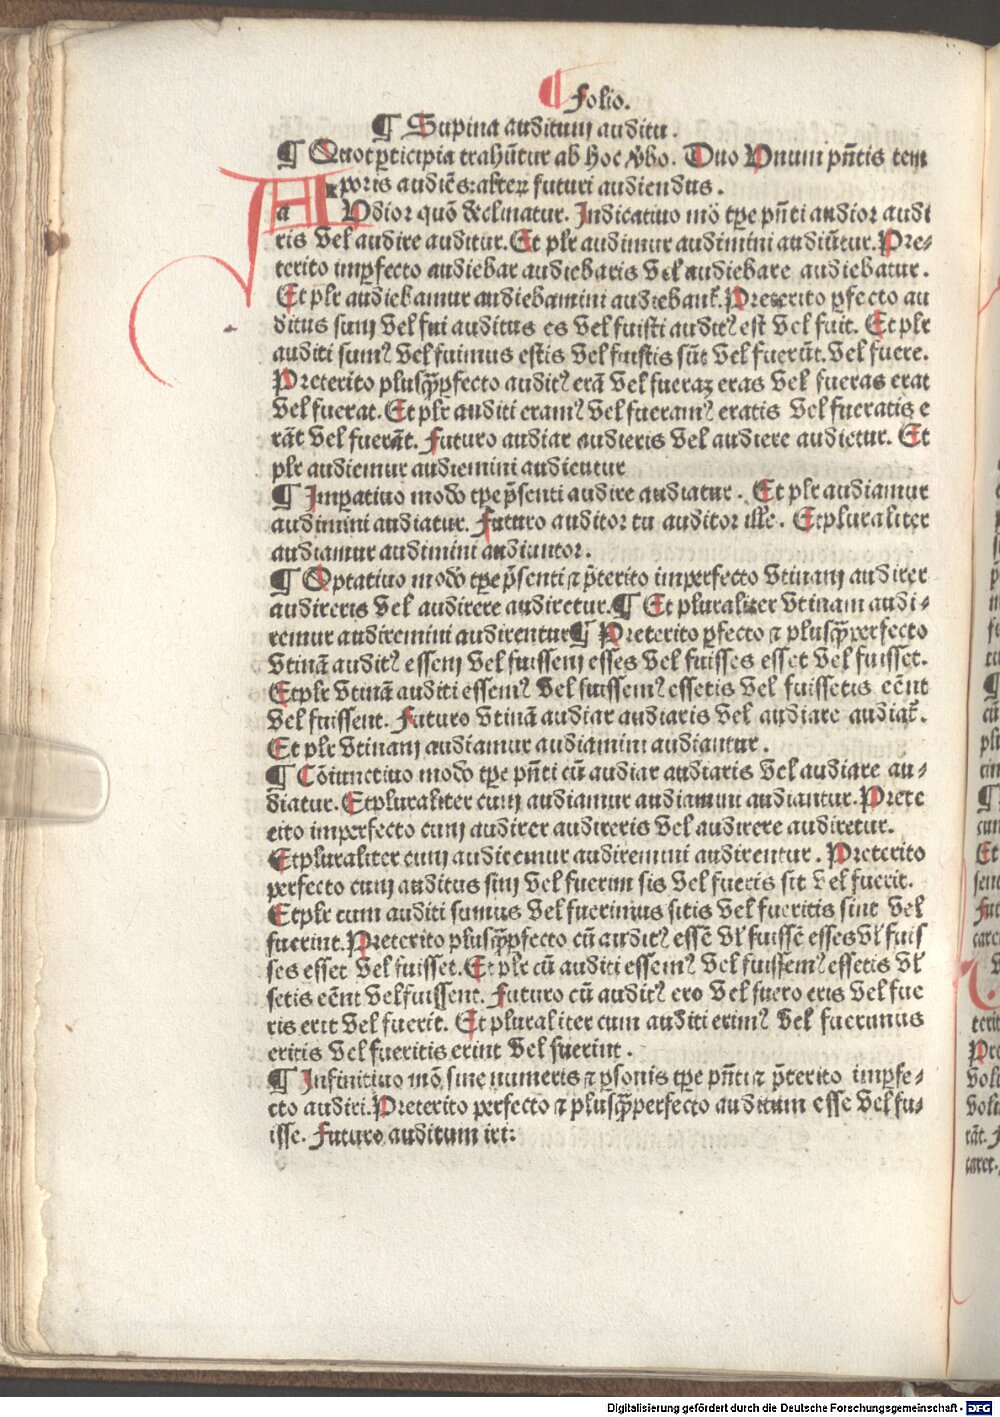 ¶ Folio.
¶ Supina auditum auditu.
¶ Quot pticipia trahūtur ab hoc v̾bo. Duo Vnum pn̄tis tem
poris audiēs: alterꝝ futuri audiendus.
a Vdior quō declinatur. Indicatiuo mō tꝑe pn̄ti audior audi
ris vel audire auditur. Et plr̄ audimur audimini audiūtur. Pre-
terito imꝑfecto audiebar audiebaris vel audiebare audiebatur.
Et plr̄ audiebamur audiebamini audiebant̄. Preterito ꝑfecto au
ditus sum vel fui auditus es vel fuisti auditꝰ est vel fuit. Et plr̄
auditi sumꝰ vel fuimus estis vel fuistis sūt vel fuerūt. vel fuere.
Preterito plusꝙ̄ꝑfecto auditꝰ erā vel fueraꝫ eras vel fueras erat
vel fuerat. Et plr̄ auditi eramꝰ vel fueramꝰ eratis vel fueratis e
rāt vel fuerāt. Futuro audiar audieris vel audiere audietur. Et
plr̄ audiemur audiemini audientur
¶ Imꝑatiuo modo tꝑe p̄senti audire audiatur. Et plr̄ audiamur
audimini audiatur. Futuro auditor tu auditor ille. Et pluraliter
audiamur audimini audiuntor.
¶ Optatiuo modo tꝑe p̄senti ⁊ p̄terito imperfecto vtinam audirer
audireris vel audirere audiretur. ¶ Et pluraliter vtinam audi-
remur audiremini audirentur ¶ Preterito ꝑfecto ⁊ plusꝙ̄perfecto
vtinā auditꝰ essem vel fuissem esses vel fuisses esset vel fuisset.
Et plr̄ vtinā auditi essemꝰ vel fuissemꝰ essetis vel fuissetis eēnt
vel fuissent. Futuro vtinā audiar audiaris vel audiare audiat̄.
Et plr̄ vtinam audiamur audiamini audiantur.
¶ Cōiunctiuo modo tꝑe pn̄ti cū audiar audiaris vel audiare au-
diatur. Et pluraliter cum audiamur audiamini audiantur. Prete
rito imperfecto cum audirer audireris vel audirere audiretur.
Et pluraliter cum audiremur audiremini audirentur. Preterito
perfecto cum auditus sim vel fuerim sis vel fueris sit vel fuerit.
Et plr̄ cum auditi simus vel fuerimus sitis vel fueritis sint vel
fuerint. Preterito plusꝙ̄ꝑfecto cū auditꝰ essē vl̄ fuissē esses vl̄ fuis
ses esset vel fuisset. Et plr̄ cū auditi essemꝰ vel fuissemꝰ essetis vl̄
setis eēnt vel fuissent. Futuro cū auditꝰ ero vel fuero eris vel fue
ris erit vel fuerit. Et pluraliter cum auditi erimꝰ vel fuerimus
eritis vel fueritis erint vel fuerint.
¶ Infinitiuo mō sine numeris ⁊ ꝑsonis tꝑe pn̄ti ⁊ p̄terito imꝑfe-
cto audiri. Preterito perfecto ⁊ plusꝙ̄perfecto auditum esse vel fu-
isse. Futuro auditum iri:
Digitalisierung gefördert durch die Deutsche Forschungsgemeinschaft - DFG